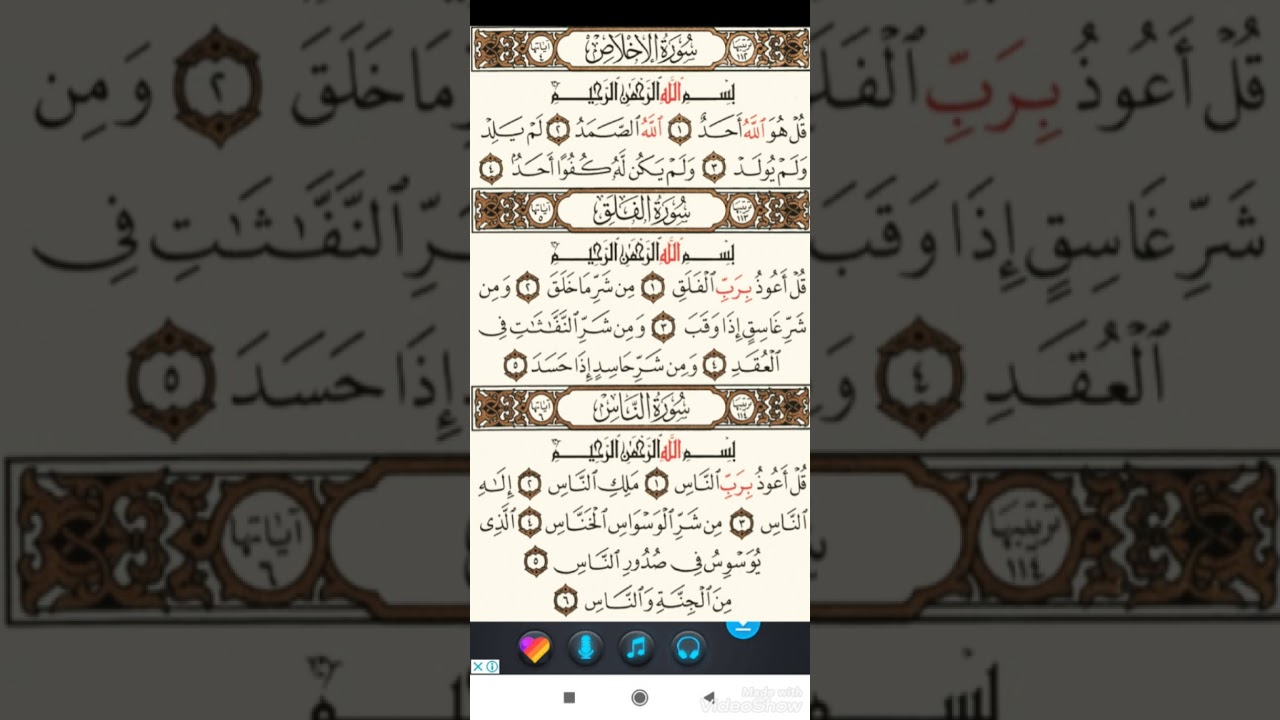 سُورَةُ الإِخْلَاصِ ترتيبها ١١٢ آياتها ٤
بِسْمِ ٱللَّهِ ٱلرَّحْمَٰنِ ٱلرَّحِيمِ
قُلْ هُوَ ٱللَّهُ أَحَدٌ ١ ٱللَّهُ ٱلصَّمَدُ ٢ لَمْ يَلِدْ
وَلَمْ يُولَدْ ٣ وَلَمْ يَكُن لَّهُۥ كُفُوًا أَحَدٌۢ ٤
سُورَةُ الفَلَقِ ترتيبها ١١٣ آياتها ٥
بِسْمِ ٱللَّهِ ٱلرَّحْمَٰنِ ٱلرَّحِيمِ
قُلْ أَعُوذُ بِرَبِّ ٱلْفَلَقِ ١ مِن شَرِّ مَا خَلَقَ ٢ وَمِن
شَرِّ غَاسِقٍ إِذَا وَقَبَ ٣ وَمِن شَرِّ ٱلنَّفَّٰثَٰتِ فِى
ٱلْعُقَدِ ٤ وَمِن شَرِّ حَاسِدٍ إِذَا حَسَدَ ٥
سُورَةُ النَّاسِ ترتيبها ١١٤ آياتها ٦
بِسْمِ ٱللَّهِ ٱلرَّحْمَٰنِ ٱلرَّحِيمِ
قُلْ أَعُوذُ بِرَبِّ ٱلنَّاسِ ١ مَلِكِ ٱلنَّاسِ ٢ إِلَٰهِ
ٱلنَّاسِ ٣ مِن شَرِّ ٱلْوَسْوَاسِ ٱلْخَنَّاسِ ٤ ٱلَّذِى
يُوَسْوِسُ فِى صُدُورِ ٱلنَّاسِ ٥
مِنَ ٱلْجِنَّةِ وَٱلنَّاسِ ٦
Made with
VideoShow